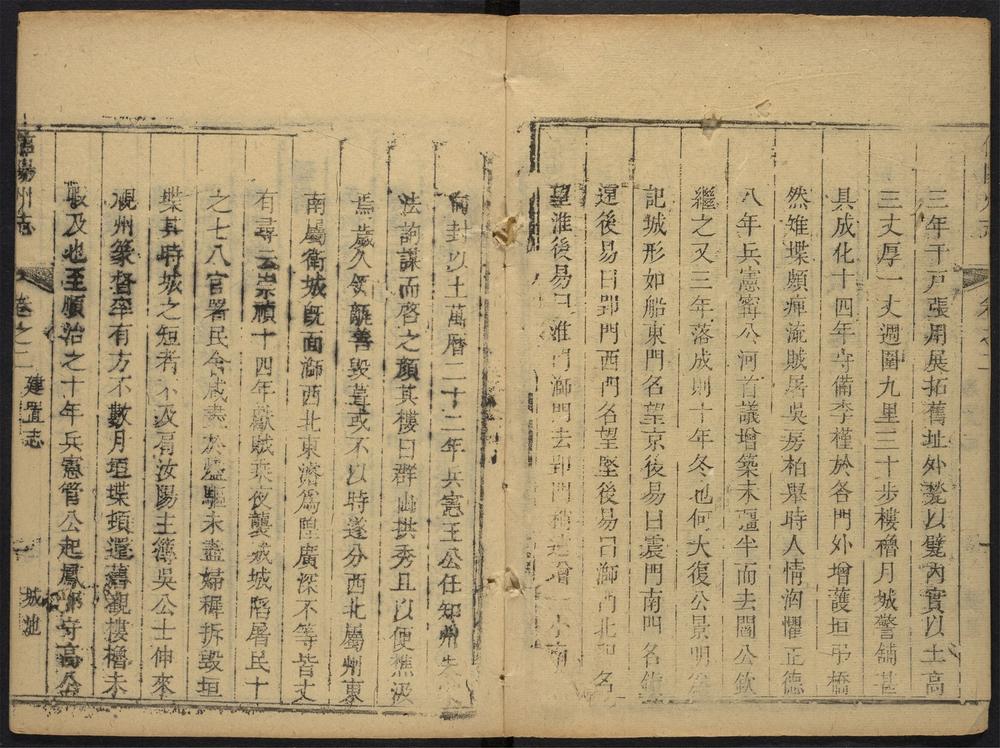 三年千戶張用展拓舊址外甃以甓內實以土高
三丈厚一丈週圍九里三十步樓櫓月城警舖甚
具成化十四年守備李權於各門外增護垣弔橋
然雉堞頗痺流賊屠吳房柏舉時人情洶懼正德
八年兵憲寗公河首議增築未疆半而去閻公欽
繼之又三年落成則十年冬也何大復公景明為
記城形如船東門名望京後易曰震門南門名
遠後易曰郢門西門名望堅後易曰溮門北門名
望淮後易曰淮門溮門去郢門增一小南
封以土萬曆二十二年兵憲王公任知州朱
法詢謀而啓之顏其樓曰群山拱秀且以便樵汲
焉歲久領甃善毀葺或不以時遂分西北屬州東
南屬衛城既面溮西北東濬為隍廣深不等皆丈
有尋云崇禎十四年獻賊乘夜襲城城陷屠民十
之七八官署民舍咸燕於盡驅未盡婦稚拆毀垣
堞其時城之短者不及肩汝陽主簿吳公士伸來
視州篆督率有方不數月垣堞頓還舊觀樓櫓未
暇及也至順治之十年兵憲管公起鳳郡守高公
信陽州志
卷之二
建置志
城池